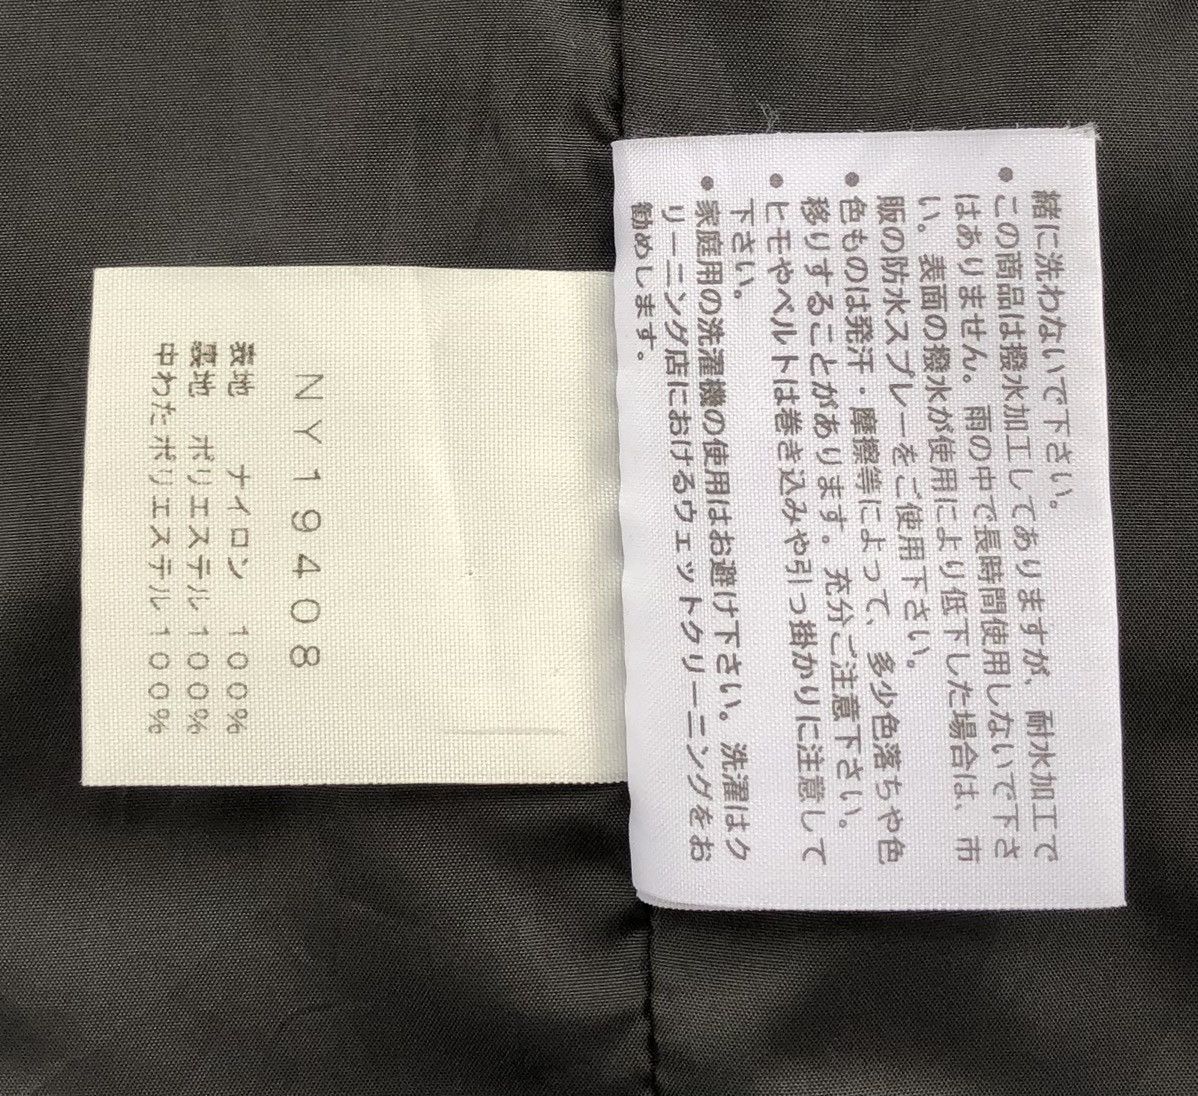 緒に洗わないで下さい。
●この商品は撥水加工してありますが、耐水加工で
はありません。雨の中で長時間使用しないで下さ
い。表面の撥水が使用により低下した場合は、市
販の防水スプレーをご使用下さい。
●色ものは発汗・摩擦等によって、多少色落ちや色
移りすることがあります。充分ご注意下さい。
●ヒモやベルトは巻き込みや引っ掛かりに注意して
下さい。
●家庭用の洗濯機の使用はお避け下さい。洗濯はク
リーニング店におけるウェットクリーニングをお
勧めします。
NY19408
表地 ナイロン 100%
裏地 ポリエステル100%
中わたポリエステル100%